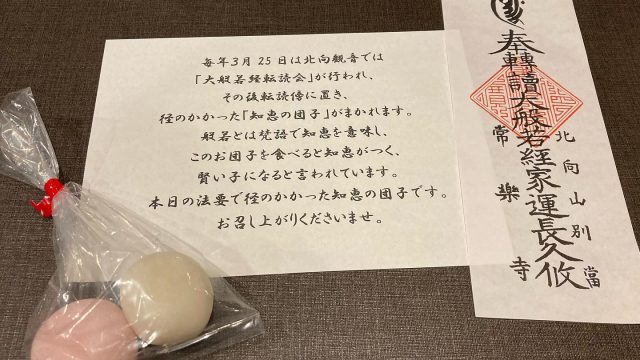 毎年3月25日は北向観音では
「大般若経転読会」が行われ、
その後転読傍に置き、
径のかかった「知恵の団子」がまかれます。
般若とは梵語で知恵を意味し、
このお団子を食べると知恵がつく、
賢い子になると言われています。
本日の法要で径のかかった知恵の団子です。
お召し上がりくださいませ。
奉轉讀大般若経家運長久攸
北向山別當
常樂寺